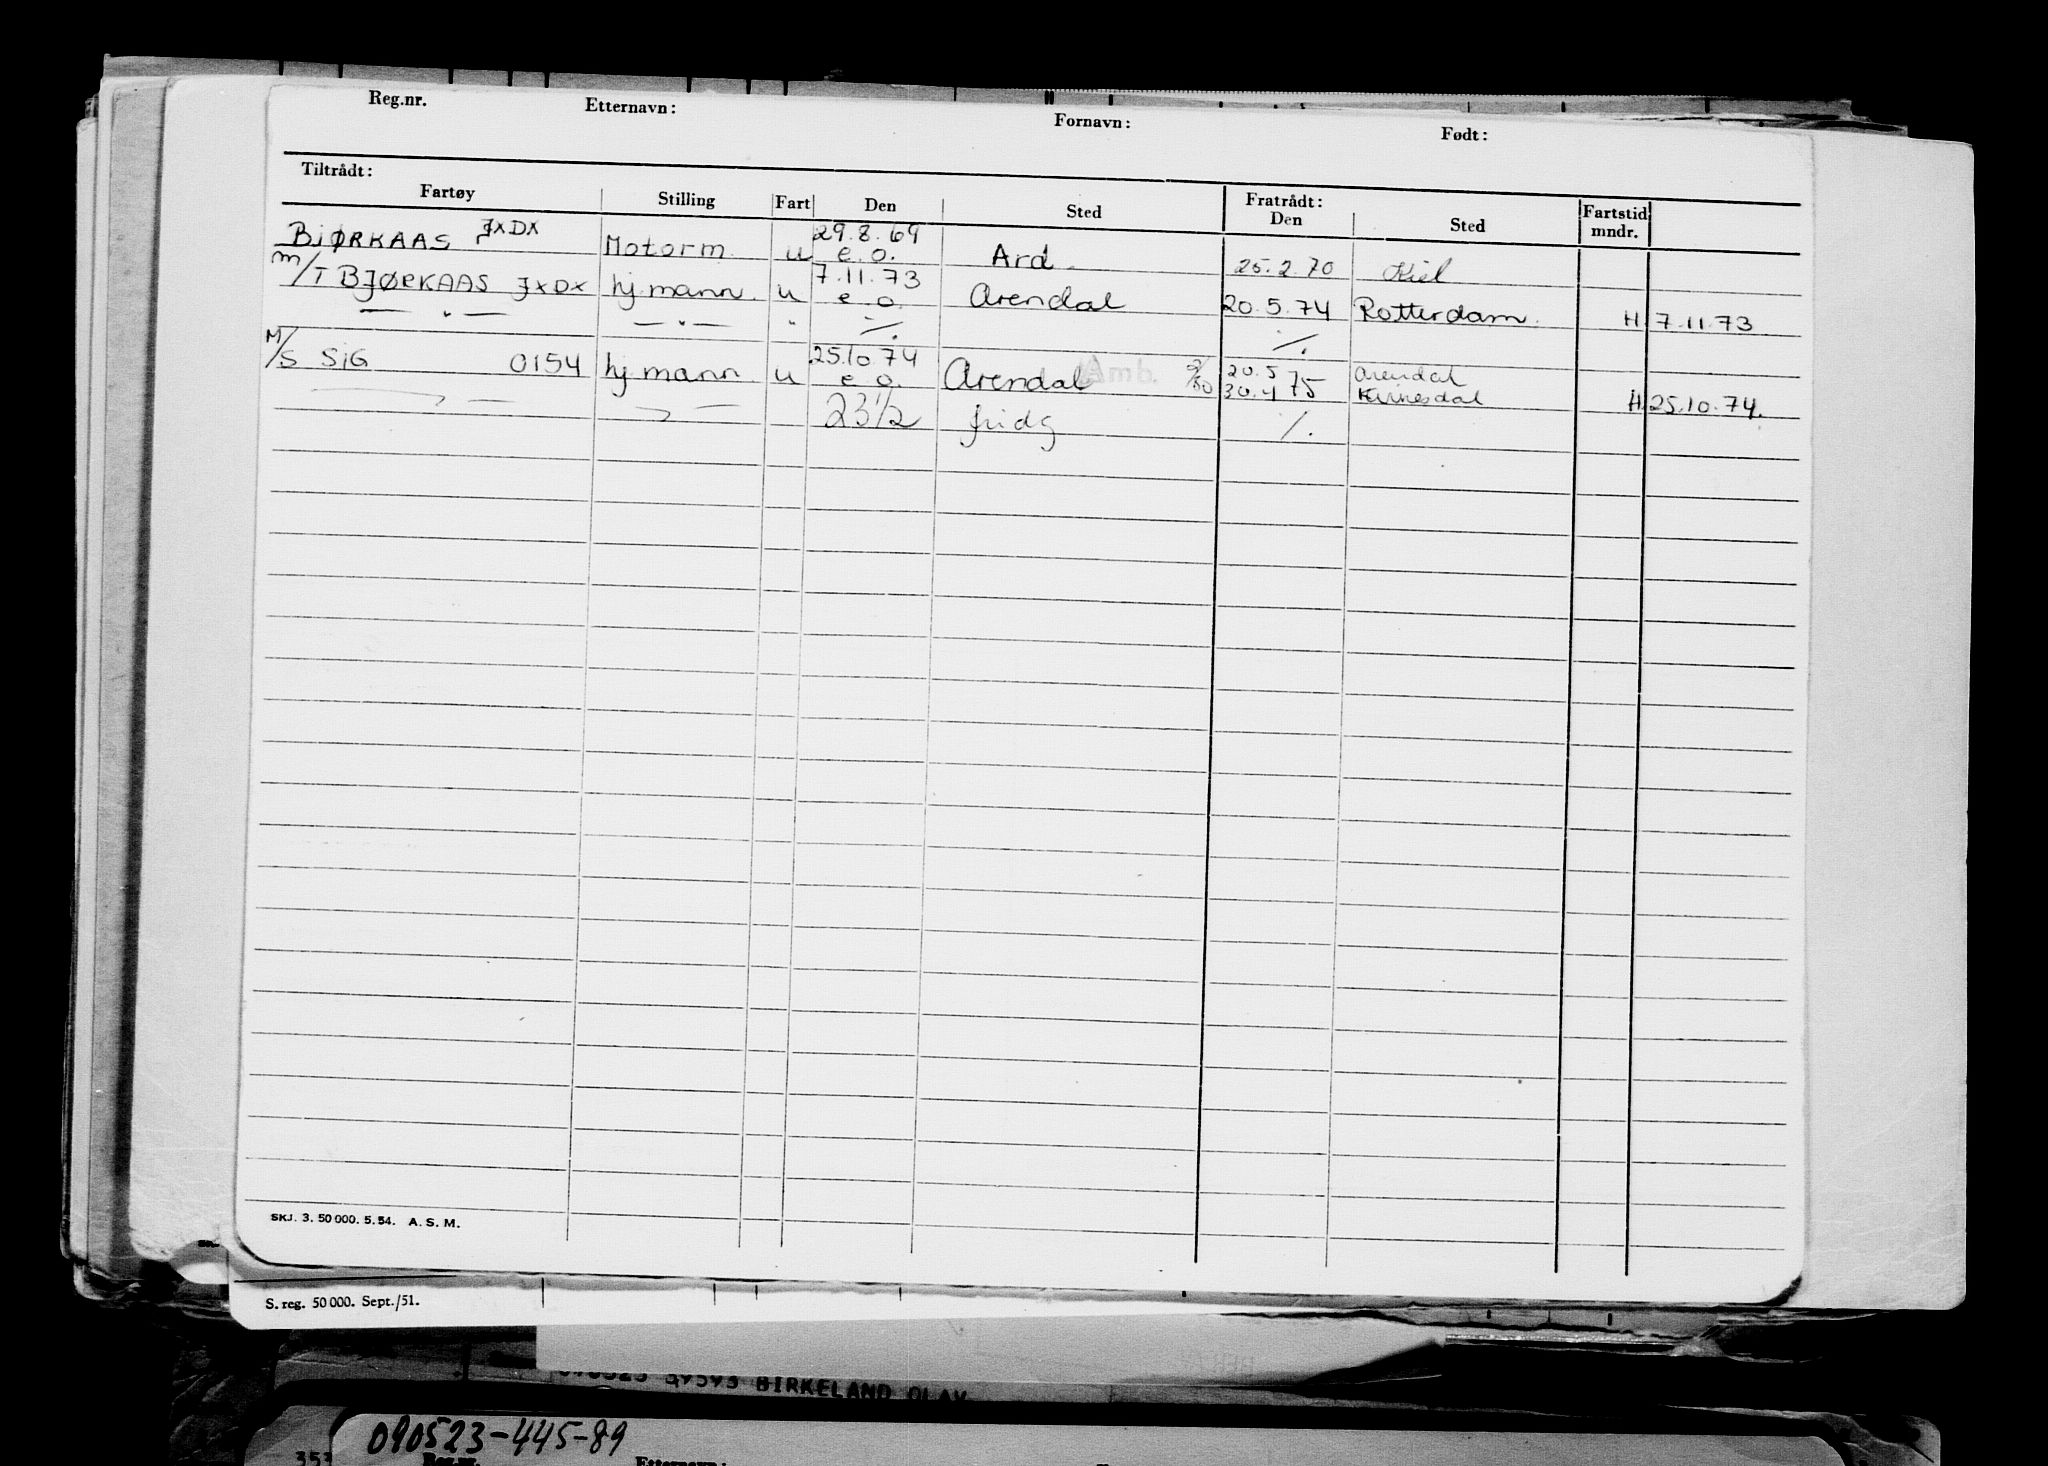 Reg.nr. Etternavn: Fornavn: Født:
Tiltrådt: Fratrådt:
Fartøy Stilling Fart Den Sted Den Sted Fartstid mndr.
BJØRKAAS JXDX Motorm. u 29.8.69 e.o. Ard. 25.2.70 Kiel
M/T BJØRKAAS JXDX hj.mann. u 7.11.73 e.o. Arendal 20.5.74 Rotterdam. H 7.11.73
— " — — " — " /. /.
M/S SIG 0154 hj.mann u 25.10.74 e.o. Arendal Amb. 20.5 30.4 75 Arendal H 25.10.74.
23 1/2 fridg /.
SKJ. 3. 50 000. 5. 54. A. S. M.
S. reg. 50 000. Sept./51.
BIRKELAND OLAV
090523-445-89
353 Reg.nr. Etternavn: